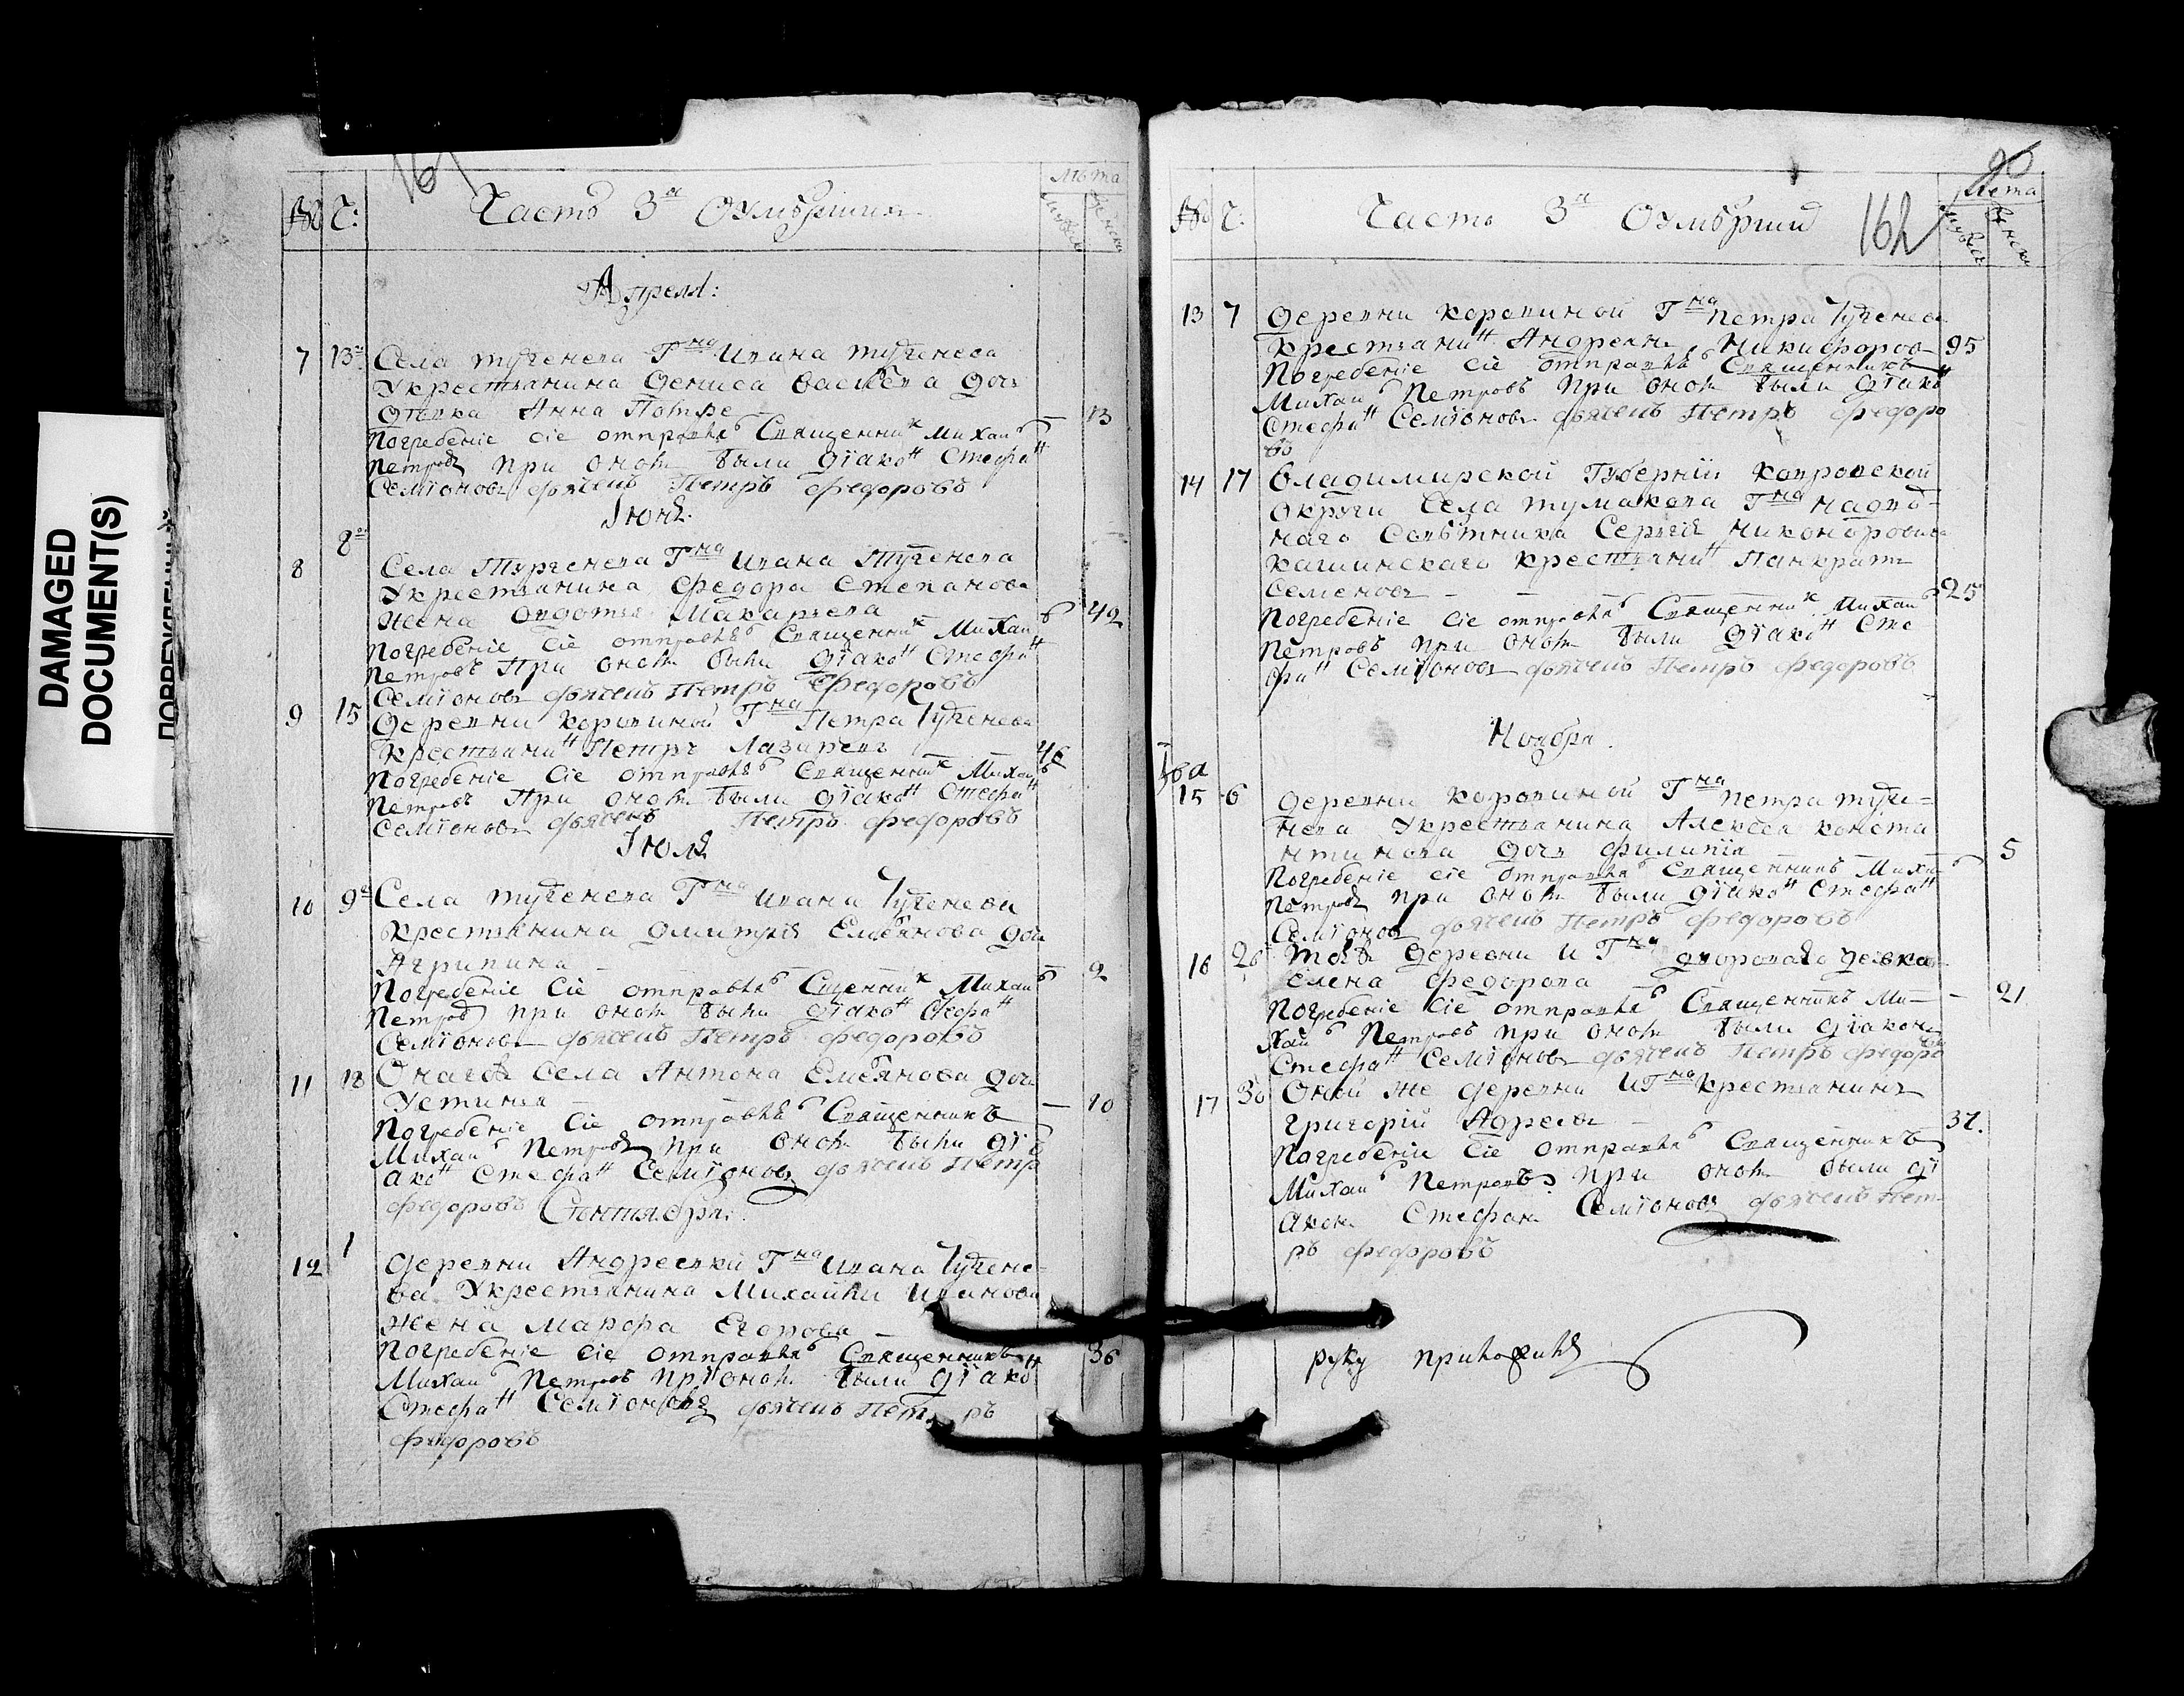 DAMAGED
DOCUMENT(S)
161
№ Ч: Часть 3я Оумѣршия Лѣта
Апреля:
7 13го Села Тургенева Гна Ивана Тургенева
У крестьянина Дениса Васильева дочь
девка Анна 13
Погребение сіе отправлялъ Священникъ Михаилъ
Петровъ при ономъ были діаконъ Стефанъ
Семіоновъ дьячекъ Петръ Федоровъ
Іюня
8 8го Села Тургенева Гна Ивана Тургенева
У крестьянина Федора Степанова
жена Овдотья Макарьева 42
Погребеніе сіе отправлялъ Священникъ Михаилъ
Петровъ При ономъ были діаконъ Стефанъ
Семіоновъ дьячекъ Петръ Федоровъ
9 15 Деревни Коровиной Гна Петра Тургенева
Крестьянинъ Петръ 46
Погребеніе сіе отправлялъ Священникъ Михаилъ
Петровъ При ономъ были діаконъ Стефанъ
Семіоновъ дьячекъ Петръ Федоровъ
Іюля
10 9го Села Тургенева Гна Ивана Тургенева
Крестьянина Дмитрія Емельянова дочь
Агрипина 2
Погребеніе сіе отправлялъ Сщенникъ Михаилъ
Петровъ при ономъ были діаконъ Стефанъ
Семіоновъ дьячекъ Петръ Федоровъ
11 18 Онагожъ Села Антона Емельянова дочь
Устинья 10
Погребеніе сіе отправлялъ Священникъ
Михаилъ Петровъ при ономъ были ді
аконъ Стефанъ Семіоновъ дьячекъ Петръ
Федоровъ Сентября:
12 1 Деревни Андреевки Гна Ивана Тургене-
ва У крестьянина Михайлы Иванова
жена Марфа Егорова 36
Погребеніе сіе отправлялъ Священникъ
Михаилъ Петровъ при ономъ были діаконъ
Стефанъ Семіоновъ дьячекъ Петръ
Федоровъ
90
№ Ч: Часть 3я Оумѣрший 162 Лета
13 7 Деревни Коровиной Гна Петра Тургенева
Крестьянинъ Андреянъ Никифоровъ 95
Погребеніе сіе отправлялъ Священникъ
Михаилъ Петровъ при ономъ были діаконъ
Стефанъ Семіоновъ дьячекъ Петръ Федоро
въ
14 17 Владимирской Губерніи Ковровской
округи Села Тумакова Гна надвор-
наго Совѣтника Сергія Никоноровича
Кашинскаго крестьянинъ Панкратъ
Семеновъ 25
Погребеніе сіе отправлялъ Священникъ Михаилъ
Петровъ при ономъ были діаконъ Сте
фанъ Семіоновъ дьячекъ Петръ Федоровъ
Ноября
15 6 Деревни Коровиной Гна Петра Турге-
нева У крестьянина Алексея Конста
нтинова дочь 5
Погребеніе сіе отправлялъ Священникъ Михаилъ
Петровъ при ономъ были діаконъ Стефанъ
Семіоновъ дьячекъ Петръ Федоровъ
16 26 Тояжъ деревни и Гна девка
Елена Федорова 21
Погребеніе сіе отправлялъ Священникъ Ми-
хаилъ Петровъ при ономъ были діаконъ
Стефанъ Семіоновъ дьячекъ Петръ Федоровъ
17 30 Оной же деревни и Гна крестьянинъ
Григорій 37.
Погребеніе сіе отправлялъ Священникъ
Михаилъ Петровъ при ономъ были ді
аконъ Стефанъ Семіоновъ дьячекъ Пет
ръ Федоровъ
руку приложилъ